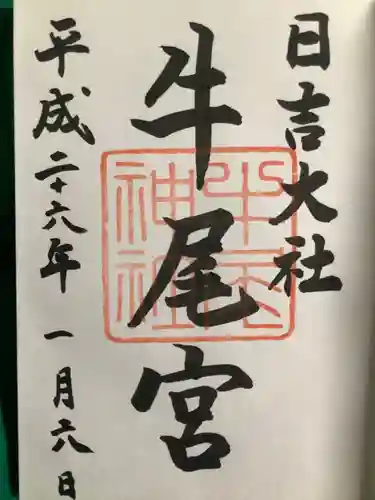 日吉大社
牛尾宮
牛尾神社
平成二十六年 一月六日